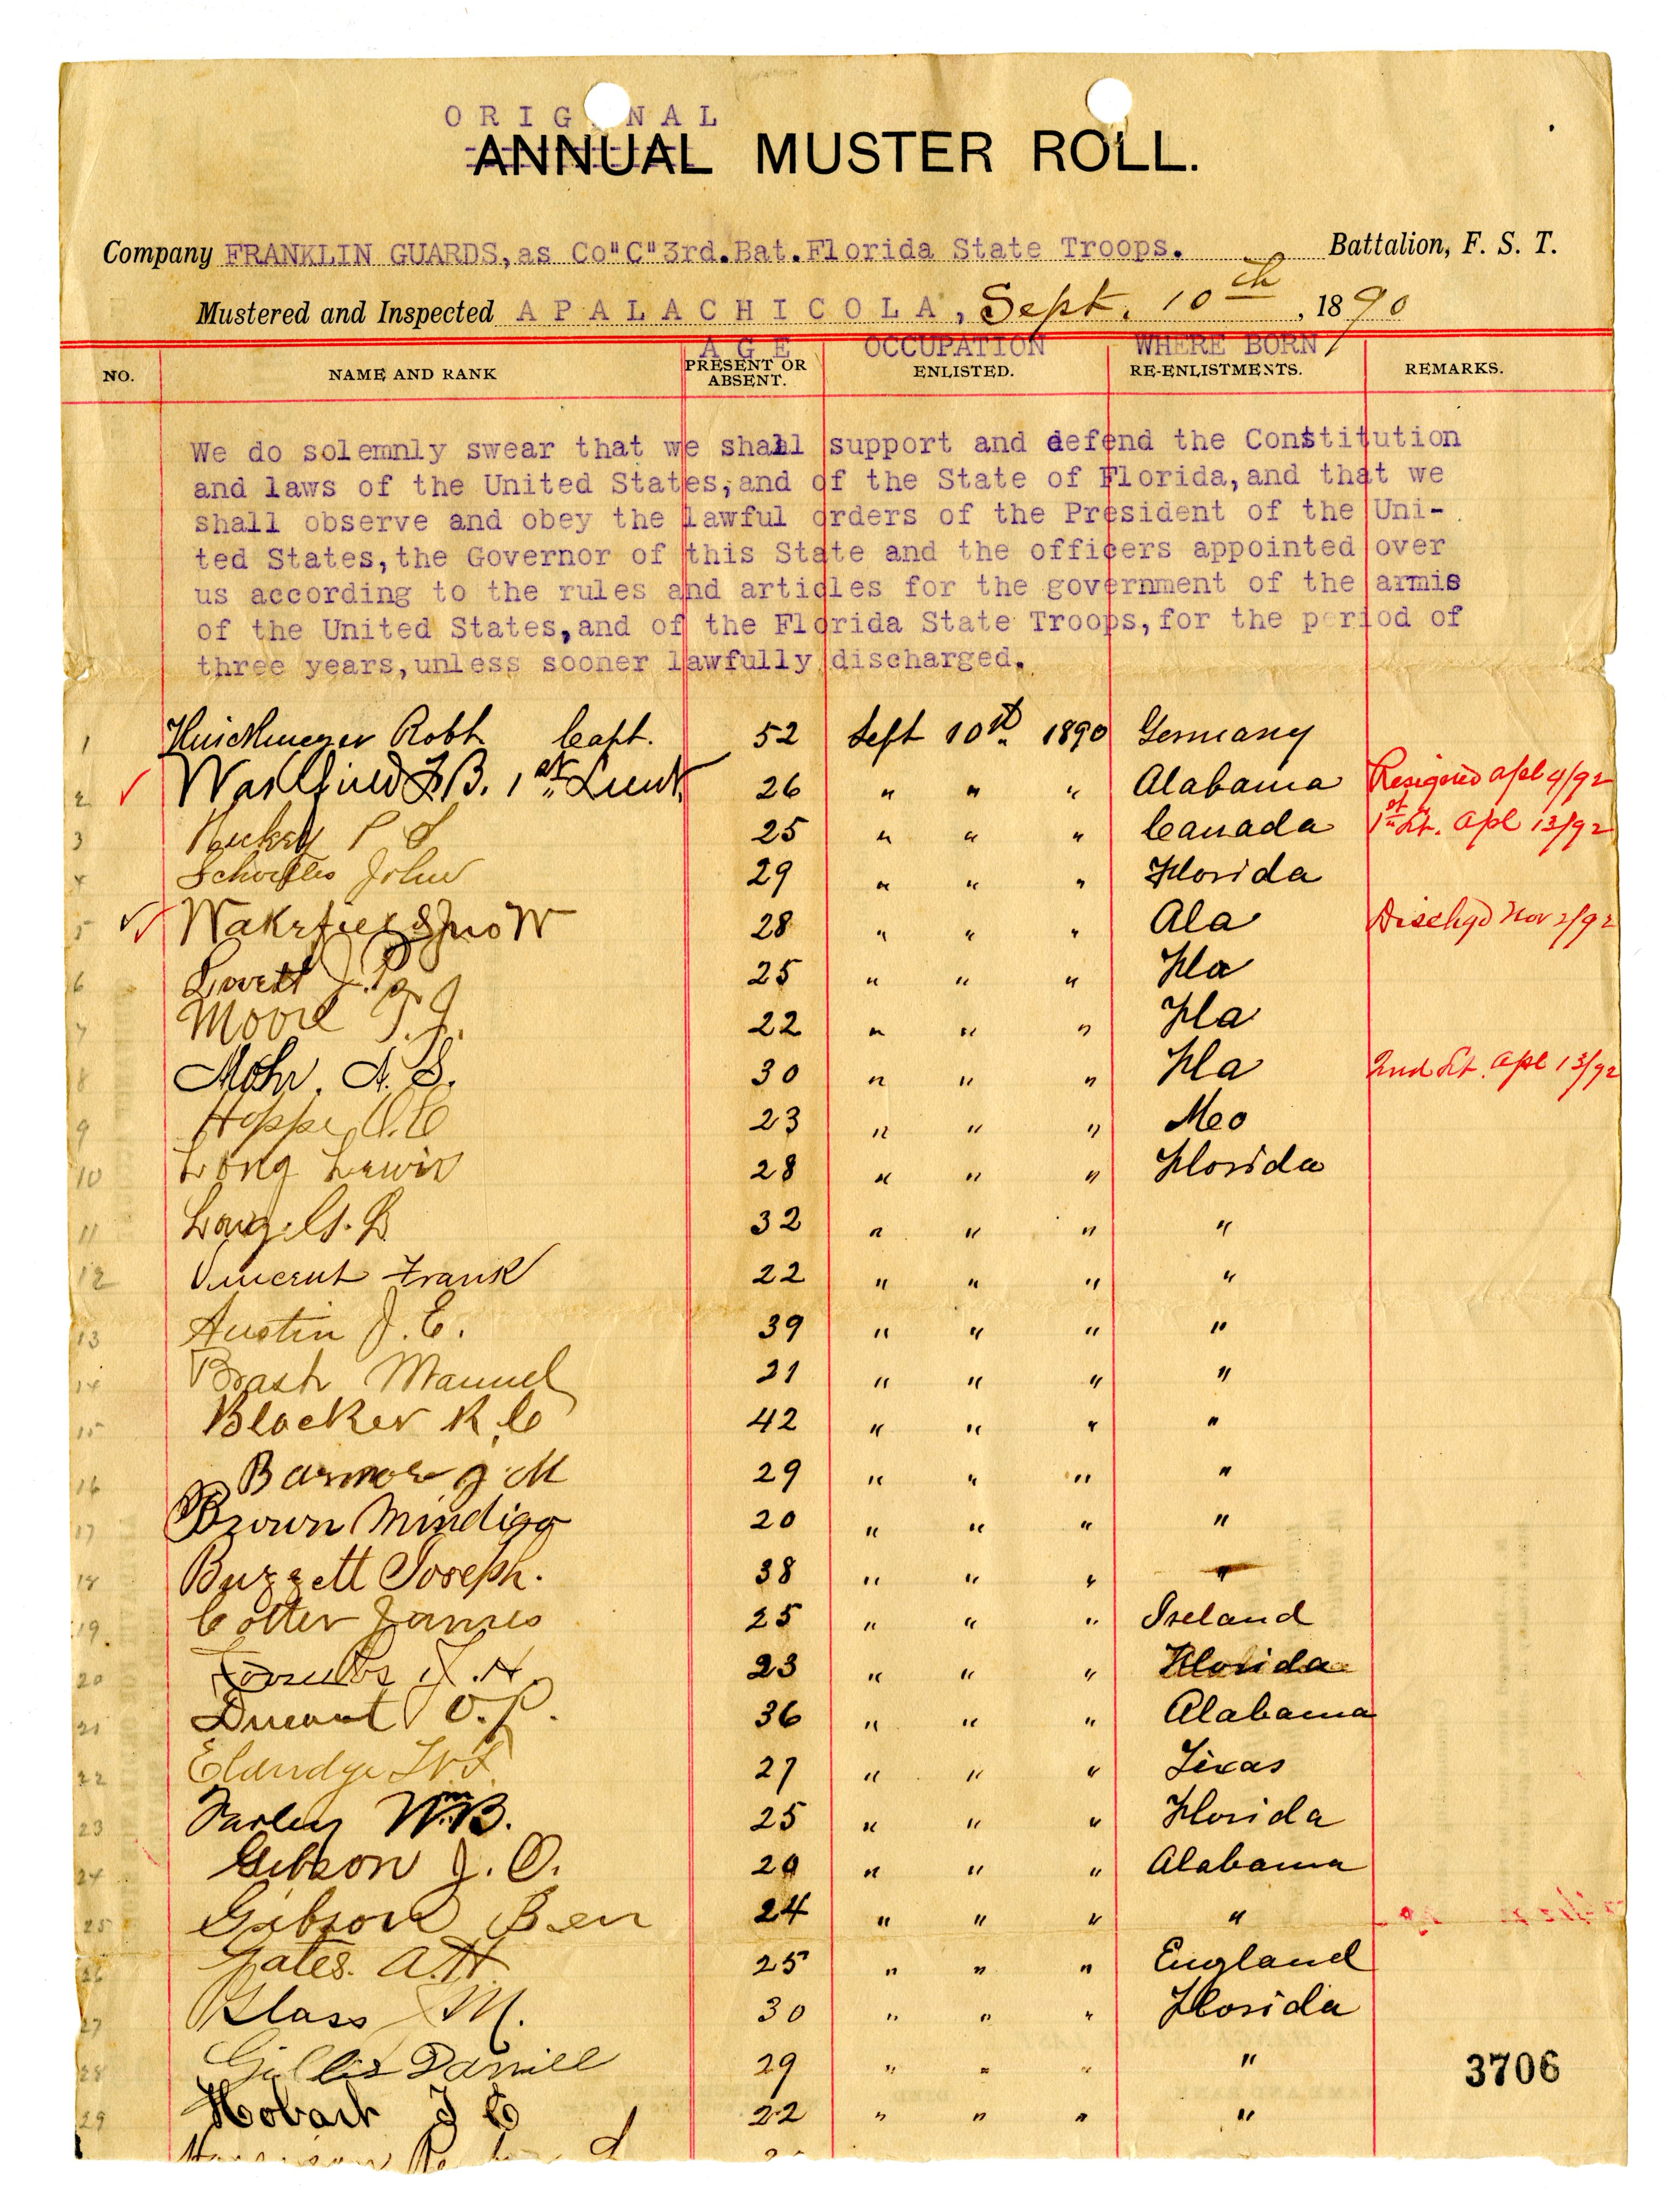 ORIG NAL
ANNUAL MUSTER ROLL.
Company FRANKLIN GUARDS, as Co"C"3rd.Bat.Florida State Troops. Battalion, F. S. T.
Mustered and Inspected APALACHICOLA, Sept. 10th, 1890
AGE OCCUPATION WHERE BORN
NO. NAME AND RANK PRESENT OR ABSENT. ENLISTED. RE-ENLISTMENTS. REMARKS.
We do solemnly swear that we shall support and defend the Constitution
and laws of the United States, and of the State of Florida, and that we
shall observe and obey the lawful orders of the President of the Uni-
ted States, the Governor of this State and the officers appointed over
us according to the rules and articles for the government of the armis
of the United States, and of the Florida State Troops, for the period of
three years, unless sooner lawfully discharged.
1 Robt Capt. 52 Sept 10th 1890 Germany
2 1st Lieut 26 " " " Alabama Resigned apl 4/92
3 25 " " " Canada 1st Lt. apl 13/92
4 John 29 " " " Florida
5 Wakefield Jno W 28 " " " Ala Dischgd Nov 2/92
6 Lovett J. P. 25 " " " Fla
7 Moore T. J. 22 " " " Fla
8 Mohr. A. S. 30 " " " Fla 2nd Lt. apl 13/92
9 Hoppe 23 " " " Meo
10 Long Lewis 28 " " " Florida
11 Long. G. B 32 " " " "
12 Vincent Frank 22 " " " "
13 Austin J. E. 39 " " " "
14 Brash Manuel 21 " " " "
15 Blocker R. C 42 " " " "
16 J M 29 " " " "
17 Brown Mindigo 20 " " " "
18 Buzzett Joseph. 38 " " " "
19. Cotter James 25 " " " Ireland
20 23 " " " Florida
21 O. P. 36 " " " Alabama
22 27 " " " Texas
23 Farley Wm B. 25 " " " Florida
24 Gibson J. O. " " " Alabama
25 Gibson Ben 24 " " " "
26 Gates. A. H. 25 " " " England
27 Glass M. 30 " " " Florida
28 Gillis Daniell 29 " " " "
3706
29 Hobart 22 " " " "